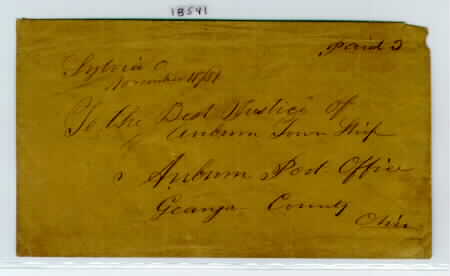 18541
paid 3
Sylvia O
November 18/51
To the Best Justice of
Auburn Town Ship
Auburn Post Office
Geauga County
Ohio